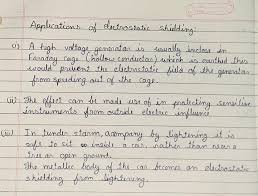 Applications of electrostatic shielding:
i) A high voltage generator is usually inclose in
Faraday cage (hollow conductor) which is earthed this
would prevent the electrostatic field of the generator
from spreading out of the cage.
(ii) The effect can be made use of in protecting sensitive
instruments from outside electric influence
(iii) In tunder starm, acompany by lightening it is
safe to sit inside a car, rather than near a
tree or open ground.
The metallic body of the car becomes an electrostatic
shielding from lightening.